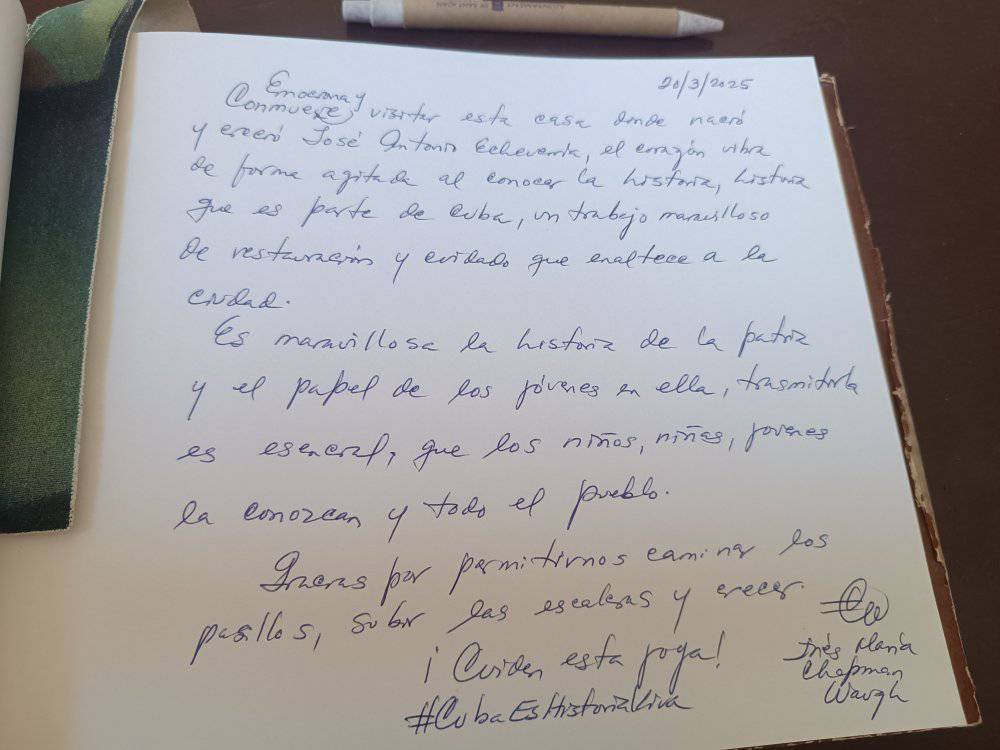 AJUNTAMENT DE SANT JOAN
20/3/2025
Emociona y
Conmueve visitar esta casa donde nació
y creció José Antonio Echeverría, el corazón vibra
de forma agitada al conocer la historia, historia
que es parte de Cuba, un trabajo maravilloso
de restauración y cuidado que enaltece a la
ciudad.
Es maravillosa la historia de la patria
y el papel de los jóvenes en ella, trasmitirla
es esencial, que los niños, niñas, jovenes
la conozcan y todo el pueblo.
Gracias por permitirnos caminar los
pasillos, subir las escaleras y crecer.
¡Cuiden esta joya!
#CubaEsHistoriaViva
Inés María
Chapman
Waugh